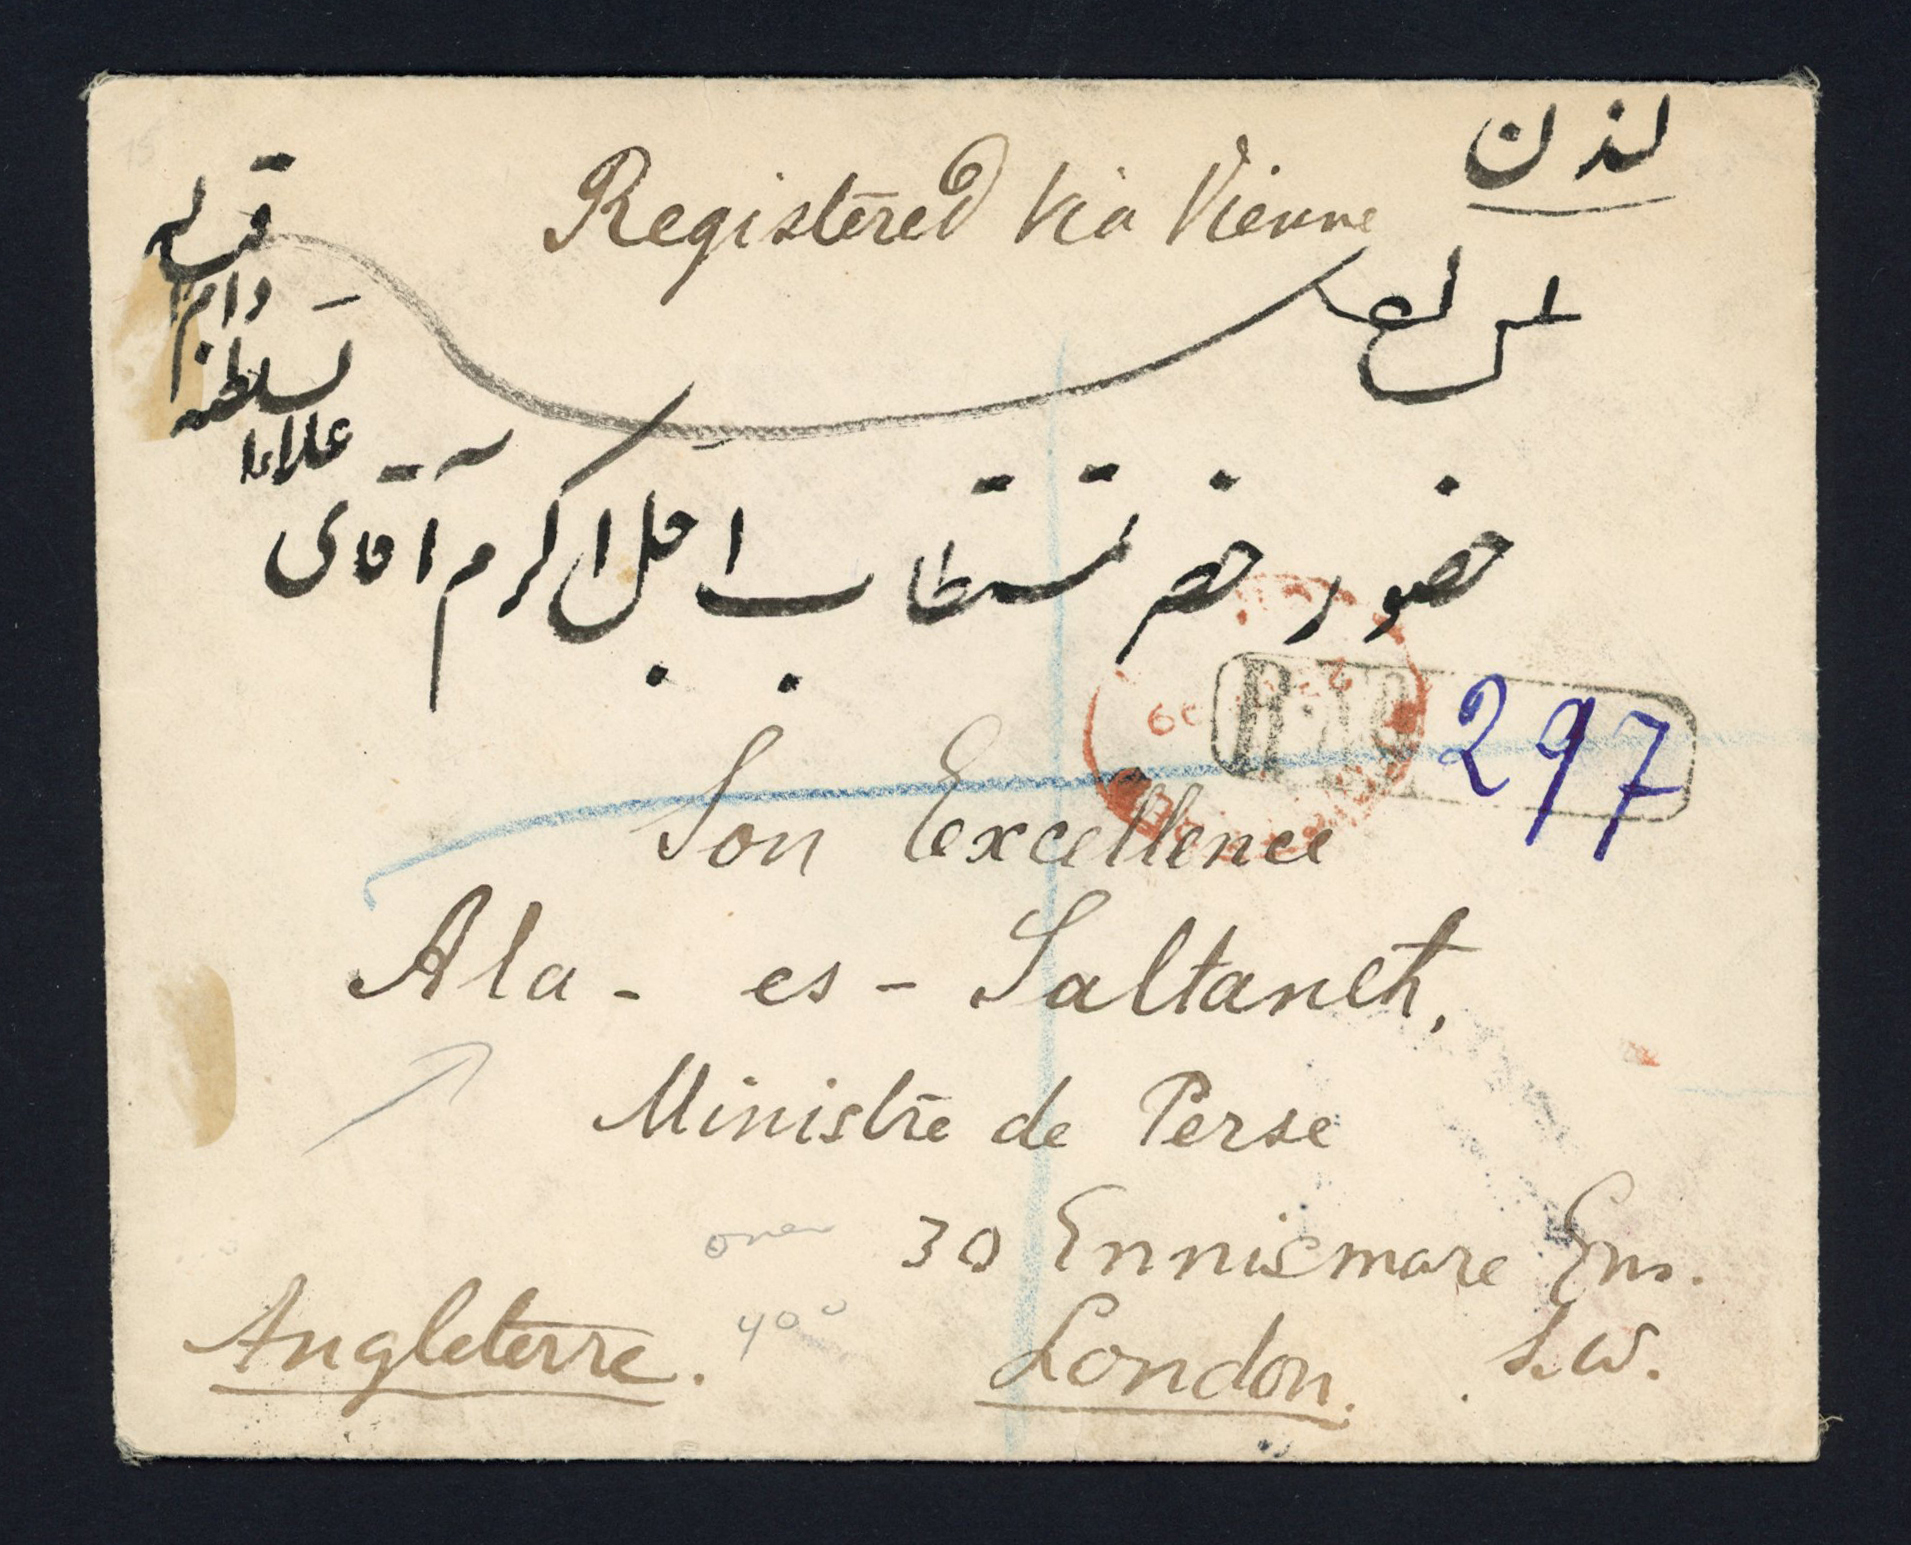 لندن
Registered Via Vienne
حضور حضرت مستطاب اجل اکرم آقای
علاءالسلطنه
دام
R. No 297
Son Excellence
Ala - es - Saltaneh,
Ministre de Perse
30 Ennismare Gns.
London. S.W.
Angleterre.
over
400